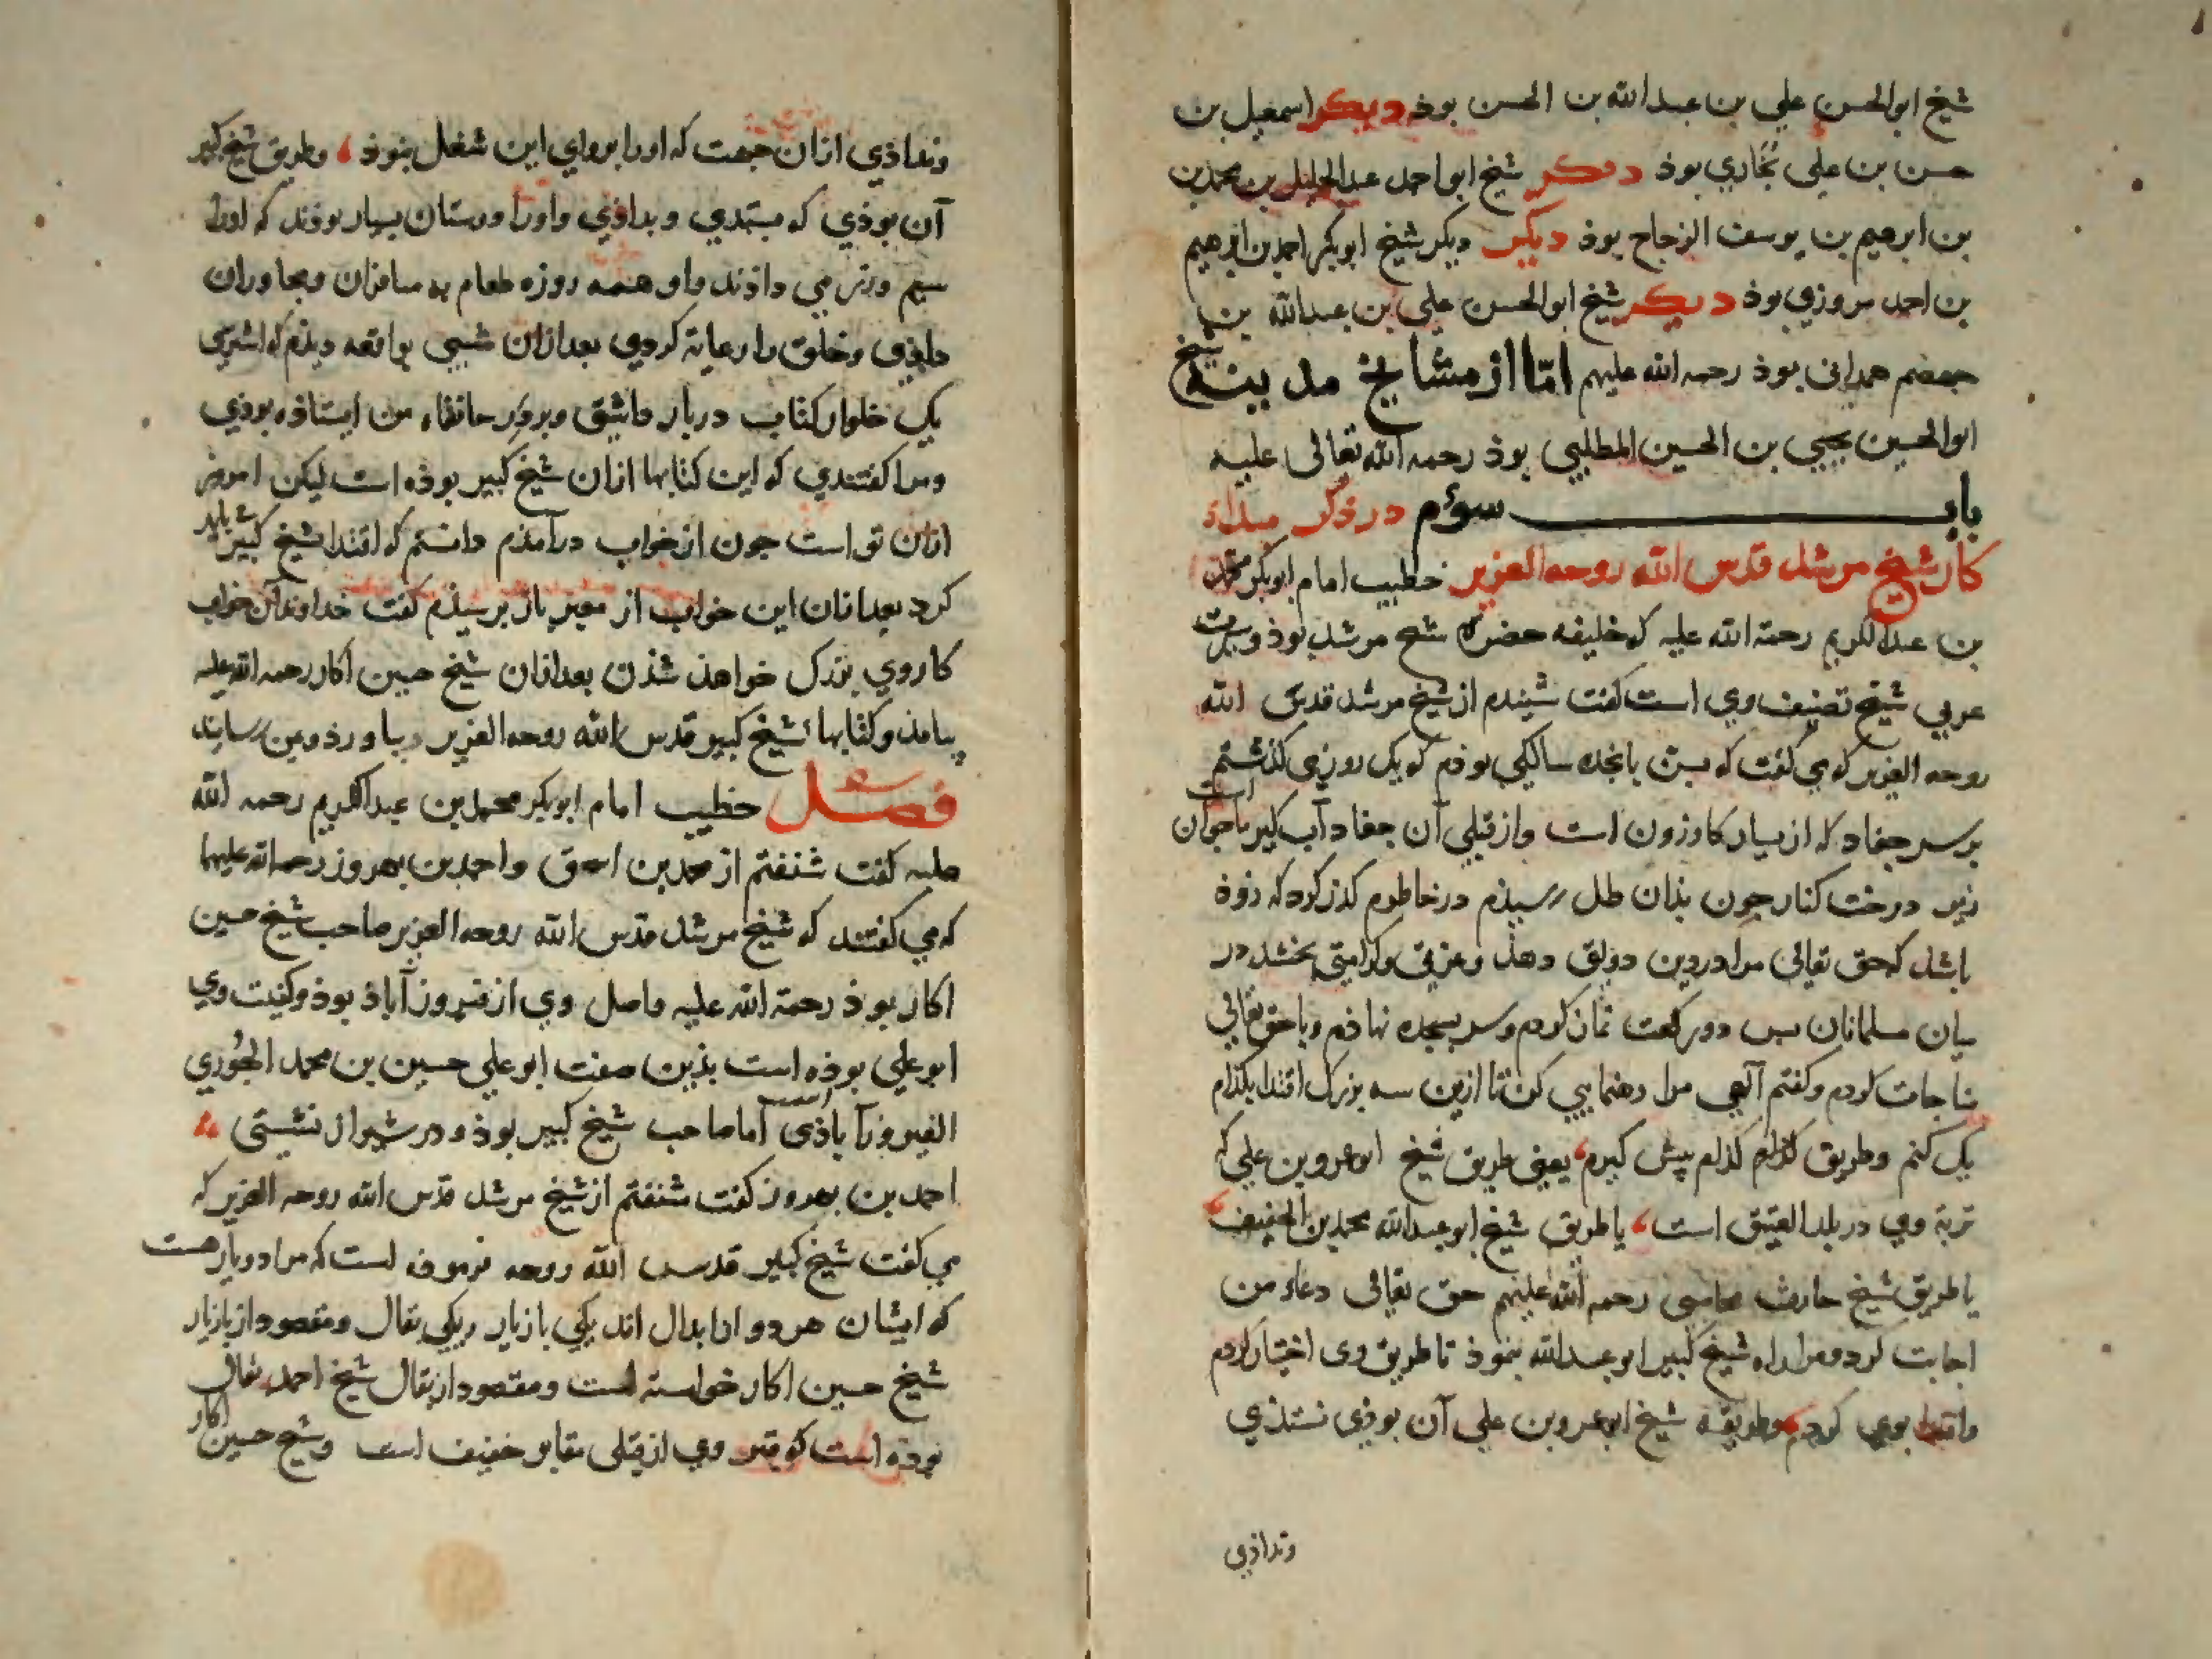 شیخ ابوالحسن علي بن عبدالله بن الحسن بوذ دیکر اسمعیل بن
حسن بن علی بخاري بوذ دیکر شیخ ابو احمد عبدالجلیل بن محمد بن
بن ابرهیم بن یوسف الزجاج بوذ دیکر دیکر شیخ ابوبکر احمد بن ابرهیم
بن احمد مروزي بوذ دیکر شیخ ابوالحسن علي بن عبدالله بن
جهضم همدانی بوذ رحمه الله علیهم امّا از مشایخ مدینه شیخ
ابوالحسین یحیی بن الحسین المطلبی بوذ رحمه الله تعالی علیه
باب سوم در ذکر مبداء
کار شیخ مرشد قدس الله روحه العزیز خطیب امام ابوبکر محمد
بن عبدالکریم رحمة الله علیه که خلیفه حضرة شیخ مرشد بوذ و سیرت
عربي شیخ تصنیف وي است کفت شنیدم از شیخ مرشد قدس الله
روحه العزیز که می کفت که بسن بانجده سالکی بوذم که یک روزی کذشتم
بر سر جفاد که از سیار کازرون است و از قبلی آن جفاد آب کیر ماجوان است
زیر درخت کنار جون بذان طل رسیذم در خاطرم کذر کرد که زوذ
باشد که حق تعالی مرا در دین دولتی دهذ و عزتی و کرامتی بخشد در
میان مسلمانان بس دو رکعت نماز کردم و سر بسجده نهاذم و با حق تعالی
مناجات کردم و کفتم آلهی مرا رهنمایی کن تا ازین سه بزرک اقتدا بکذام
یک کنم و طریق کذام کذام پیش کیرم، یعنی طریق شیخ ابوعمرو بن علی که
تربة وی در بلد العتیق است، یا طریق شیخ ابوعبدالله محمد بن الخفیف
یا طریق شیخ حارث محاسبی رحمه الله علیهم حق تعالی دعاء من
اجابت کرد و مرا راه شیخ کبیر ابوعبدالله بنموذ تا طریق وی اختیار کردم
و اقتدا بوی کردم و طریقه شیخ ابوعمرو بن علی آن بوذی نستذي
وندادی
وندادي ازان جهت که اورا بروای این شغل نبوذ، و طریق شیخ کبیر
آن بوذي که بستدي و بداذي و اورا دوستان بسیار بوذند که اورا
سیم و زر می داذند و او همه روزه طعام به مسافران و مجاوران
داذی و خلق را رعایة کردی بعد ازان شبی بواقعه دیذم که اشتری
یک خلوار کتاب دربار داشتی و بر در خانقاه من ایستاذه بوذي
و مرا کفتندي که این کتابها ازان شیخ کبیر بوذه است لیکن امروز
ازان تو است جون از خواب درآمذم دانستم که اقتدا بشیخ کبیر باید
کرد بعد ازان این خواب از معبر باز برسیذم کفت خداوند این خواب
کاروي بزرک خواهذ شذن بعد ازان شیخ حسین اکار رحمه الله علیه
بیامذ و کتابها شیخ کبیر قدس الله روحه العزیز بیاورذ و بمن رسانید
فصل خطیب امام ابوبکر محمد بن عبدالکریم رحمه الله
علیه کفت شنفتم از محمد بن اسحق و احمد بن بهروز رحمة الله علیهما
که می کفتند که شیخ مرشد قدس الله روحه العزیز صاحب شیخ حسین
اکار بوذ رحمة الله علیه و اصل وي از فیروز آباذ بوذ و کنیت وي
ابوعلي بوذه است بذین صفت ابوعلي حسین بن محمد الجُوري
الفیروزآباذی است اما صاحب شیخ کبیر بوذ و در شیراز نشستی
احمد بن بهروز کفت شنفتم از شیخ مرشد قدس الله روحه العزیز که
می کفت شیخ کبیر قدس الله روحه فرموذه است که مرا دو یار هست
که ایشان هر دو از ابدال اند یکی بازیار ویکی بقال و مقصود از بازیار
شیخ حسین اکار خواسته است و مقصود از بقال شیخ احمد بقال
بوذه است که قبر وی از قبلی مقابر خفیف است و شیخ حسین اکار